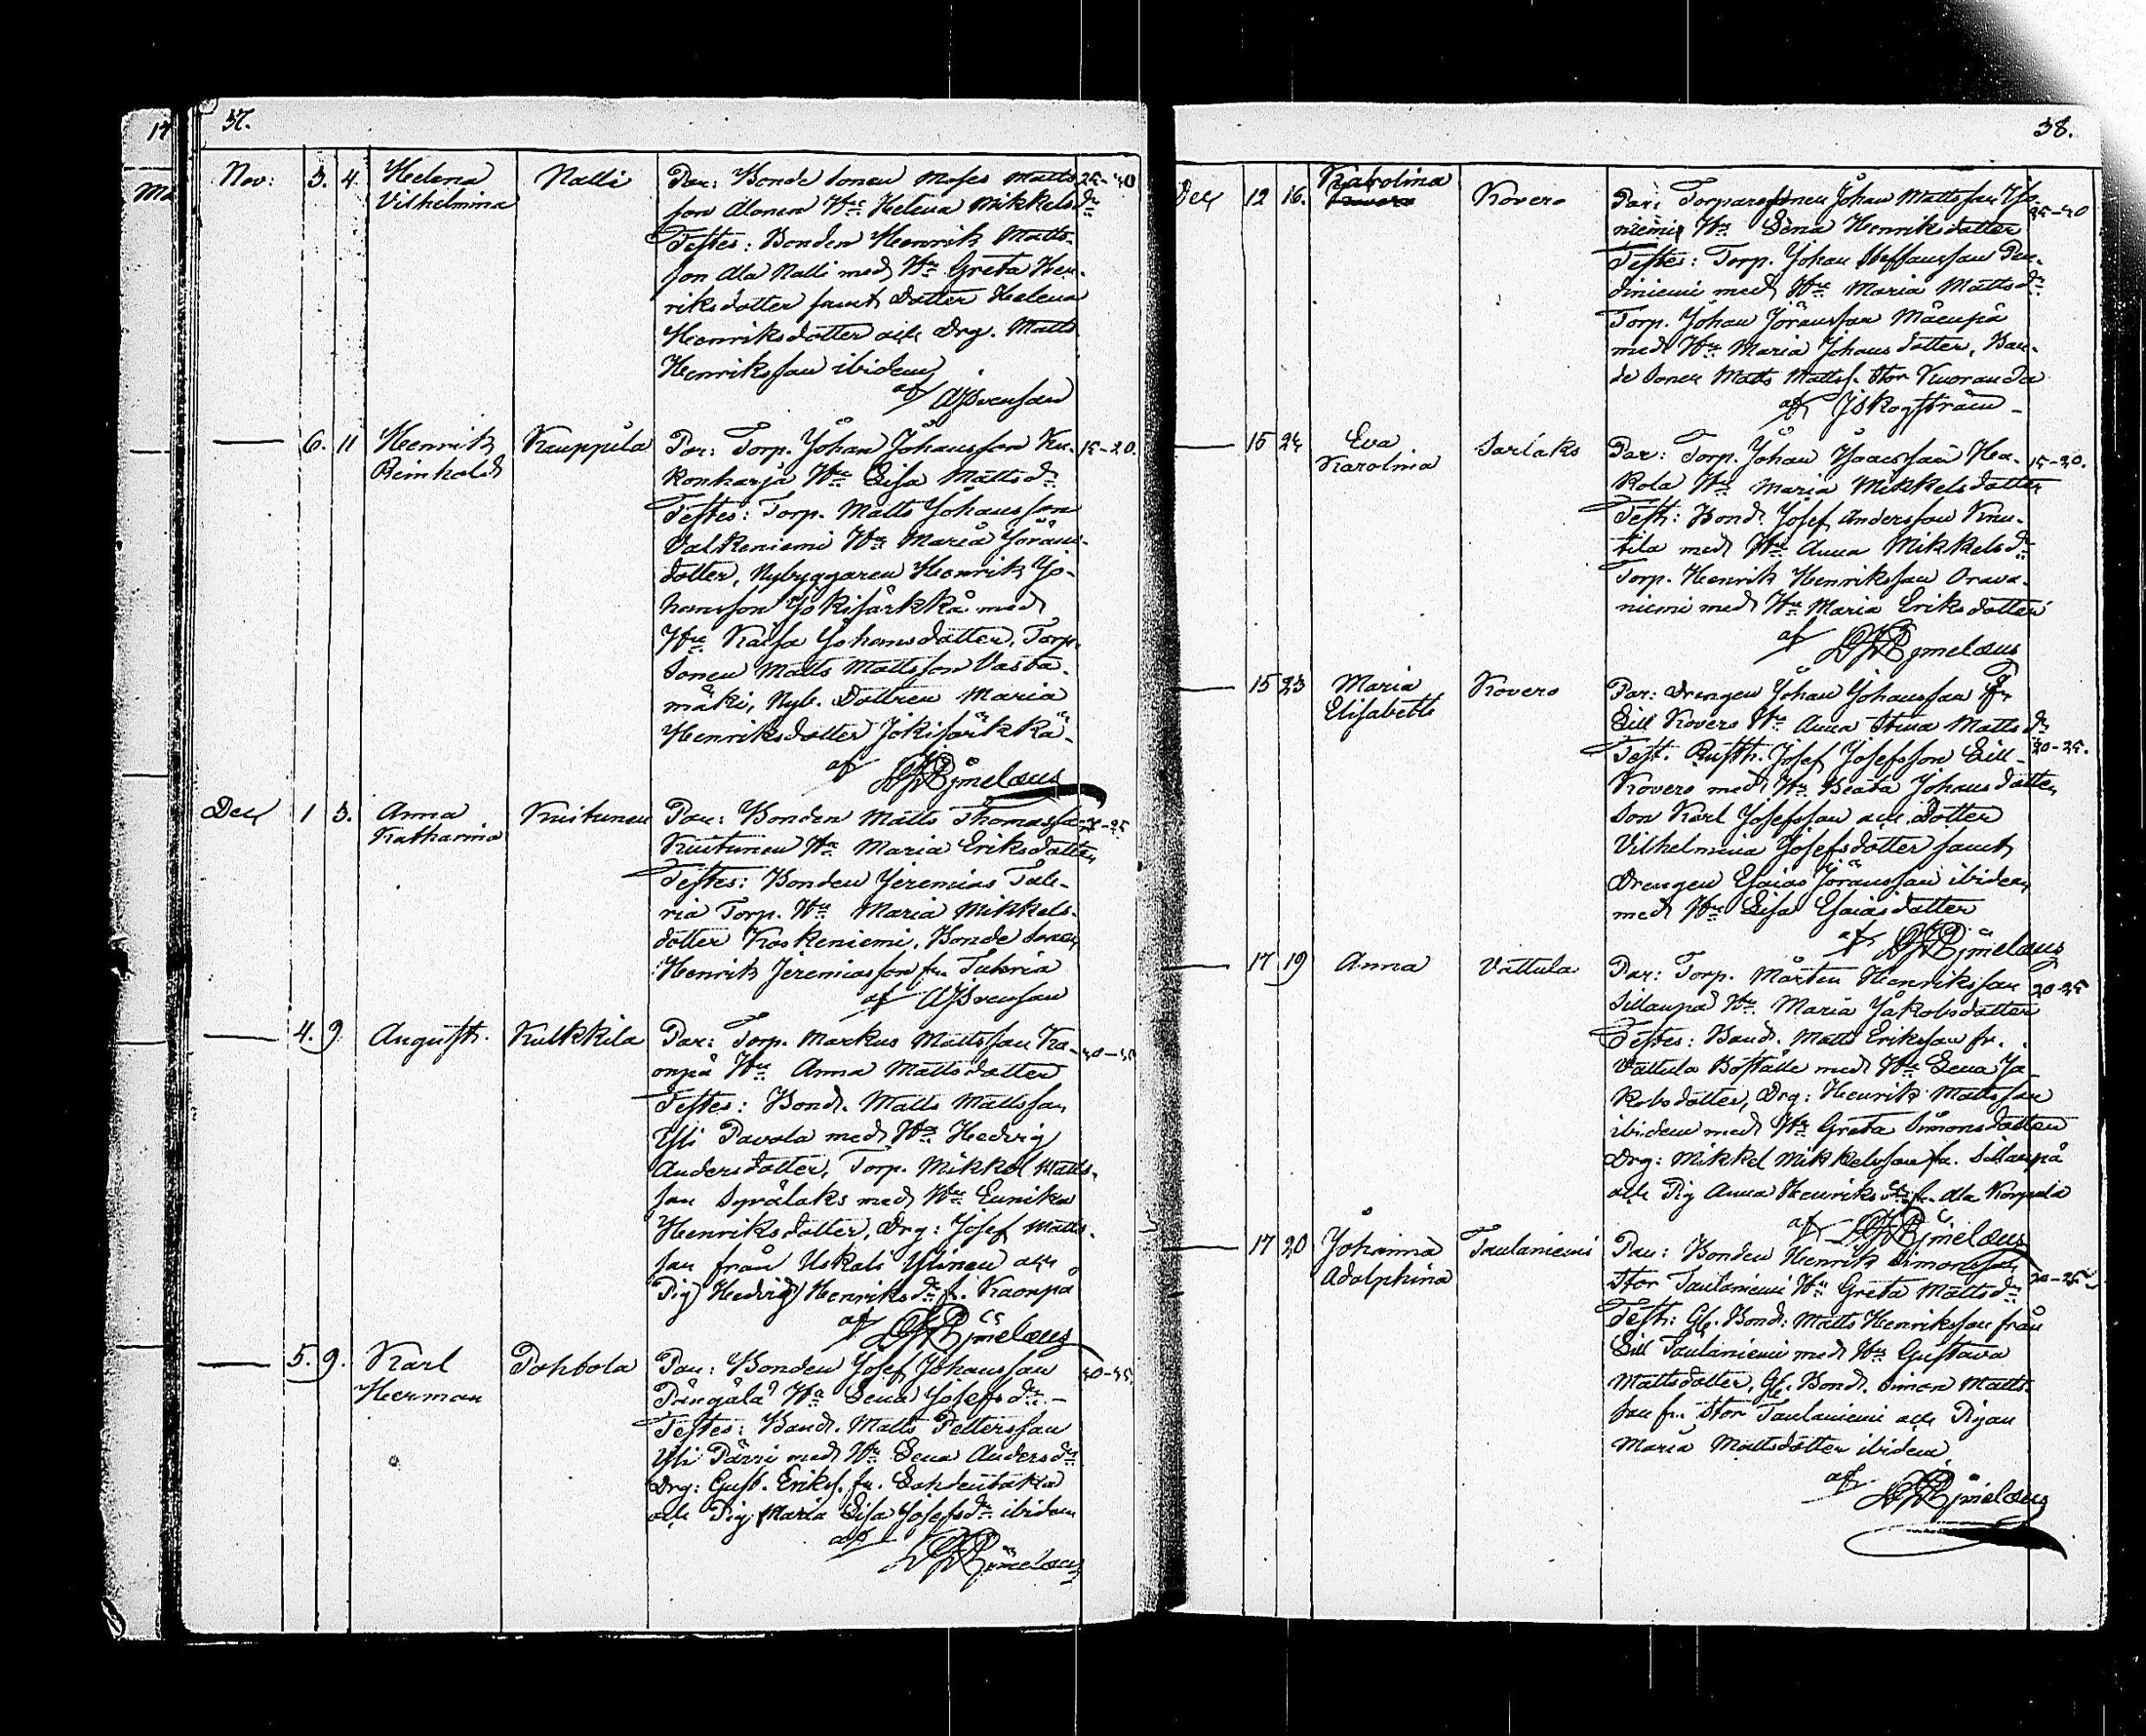 37.
Nov: 3. 4. Helena Nalli Par: Bonde sonen Moses Matts 35-40
Vilhelmina son Alonen Hu Helena Mikkelsdr
Testes: Bonden Henrik Matts-
son Ala Nalli med Hu Greta Hen-
riksdotter samt Dotter Helena
Henriksdotter och Drg. Matts
Henriksson ibidem
af AJSvensson
6. 11 Henrik Kauppila Par: Torp. Johan Johansson Ku- 15-20.
Reinhold konharja Hu Lisa Mattsdr
Testes: Torp. Matts Johansson
Valkeniemi Hu Maria Jöran-
dotter, Nybyggaren Henrik Jo-
hansson Jokisärkkä med
Hu Kaisa Johansdotter, Torp.
Sonen Matts Mattsson Vasta-
mäki, Nyb. Dottren Maria
Henriksdotter Jokisärkkä-
af Rimelæus
Dec 1 3. Anna Kuitunen Par: Bonden Matts Thomasson
Katharina Kuitunen Hu Maria Eriksdotter
Testes: Bonden Jeremias Tuk-
ria Torp. Hu Maria Mikkels-
dotter Koskeniemi, Bonde sonen
Henrik Jeremiasson fr. Tukria
af AJSvensson
4. 9 August. Kulkkila Par: Torp. Markus Mattsson Ka-
onpä Hu Anna Mattsdotter
Testes: Bond. Matts Mattsson
Yli Pavola med Hu Hedvig
Andersdotter, Torp. Mikkel Matts-
son Syrälaks med Hu Eunika
Henriksdotter, Drg: Josef Matts-
son från Uskali Ylinen och
Pig Hedvig Henriksdr fr. Kaonpä
af Rimelæus
5. 9. Karl Pohtola Par: Bonden Josef Johansson
Herman Pingälä Hu Lena Josefsdr. -
Testes: Bond. Matts Pettersson
Yli Pärri med Hu Lena Andersdr
Drg: Gust. Eriks. fr. Lahdentaka
och Pig Maria Lisa Josefsdr ibidem
af Rimelæus
38.
Dec 12 16. Karolina Kovero Par: Torparesonen Johan Mattsson 35-40
niemi Hu Lena Henriksdotter
Testes: Torp. Johan Steffansson Pen-
diniemi med Hu Maria Mattsdr
Torp. Johan Jöransson Mäenpä
med Hu Maria Johansdotter, Bon-
de sonen Matts Matts. Stor Kuoranda
af JSkogström
15 24 Eva Sarlaks Par: Torp. Johan Isaacsson Hea- 15-20.
Karolina kola Hu Maria Mikkelsdotter
Test: Bond. Josef Andersson Knu-
tila med Hu Anna Mikkelsdr
Torp. Henrik Henriksson Orava-
niemi med Hu Maria Eriksdotter
af Rimelæus
15 23 Maria Kovero Par: Drengen Johan Johansson fr
Elisabeth Lill Kovero Hu Anna Stina Mattsdr
Test. Rusth. Josef Josefsson Lill- 20-25.
Kovero med Hu Beata Johansdotter
Son Karl Josefsson och Dotter
Vilhelmina Josefsdotter samt
Drengen Esaias Jöransson ibidem
med Hu Lisa Esaiasdotter
af Rimelæus
17 19 Anna Vattula Par: Torp. Mårten Henriksson 20-25
Sillanpä Hu Maria Jakobsdotter
Testes: Bond. Matts Eriksson fr.
Vattula Boställe med Hu Lena Ja-
kobsdotter, Drg: Henrik Mattsson
ibidem med Hu Greta Simonsdotter
Drg: Mikkel Mikkelsson fr. Sillanpä
och Pig Anna Henriksdr fr. Ala Korpela
af Rimelæus
17 20 Johanna Taulaniemi Par: Bonden Henrik Simonsson
Adolphina Stor Taulaniemi Hu Greta Mattsdr 20-25
Test: Gl. Bond: Matts Henriksson från
Lill Taulaniemi med Hu Gustava
Mattsdotter, Gl. Bond. Simon Matts
son fr. Stor Taulaniemi och Pigan
Maria Mattsdotter ibidem
af Rimelæus